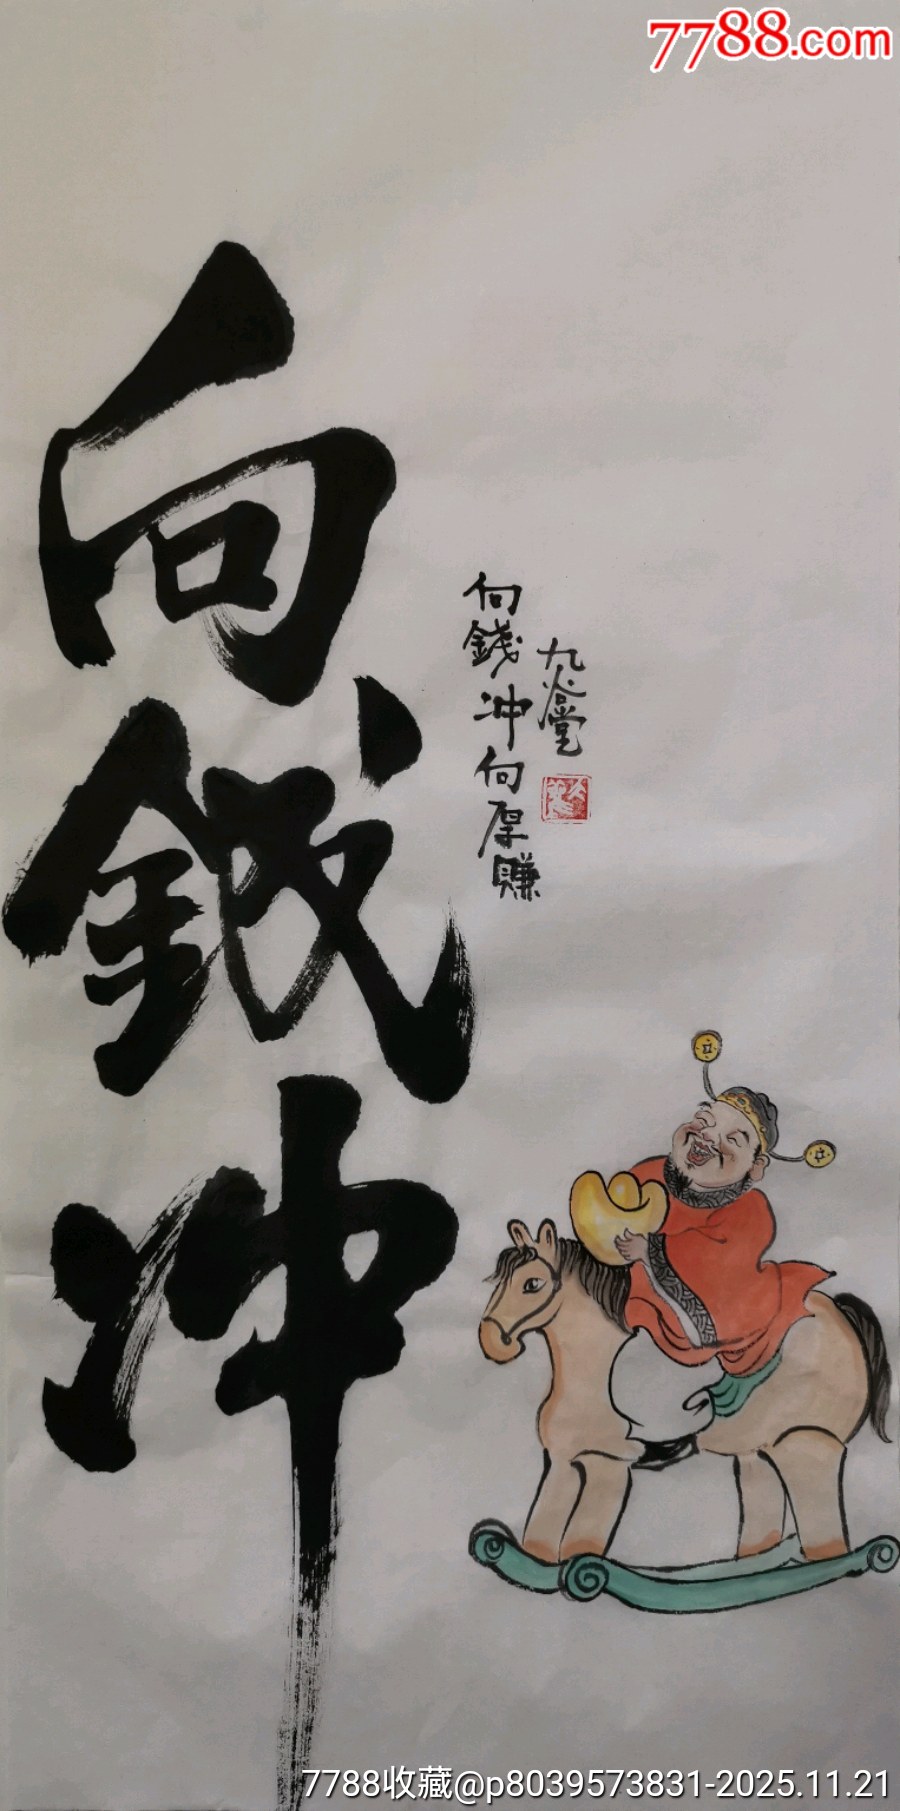 7788.com
向錢冲
向錢冲向厚賺
九
堂
7788收藏@p8039573831-2025.11.21